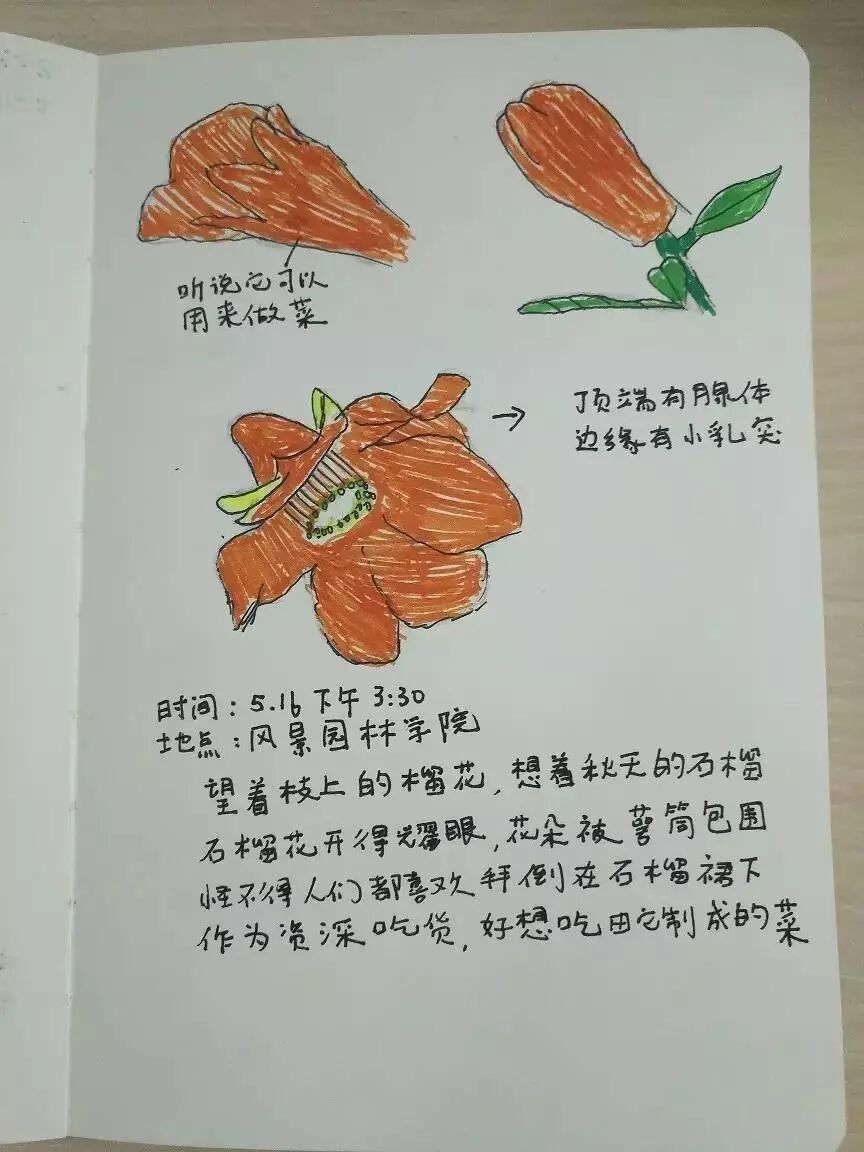 听说它可以
用来做菜
顶端有腺体
边缘有小乳突
时间：5.16下午3:30
地点：风景园林学院
望着枝上的榴花，想着秋天的石榴
石榴花开得耀眼，花朵被萼筒包围
怪不得人们都喜欢拜倒在石榴裙下
作为资深吃货，好想吃由它制成的菜